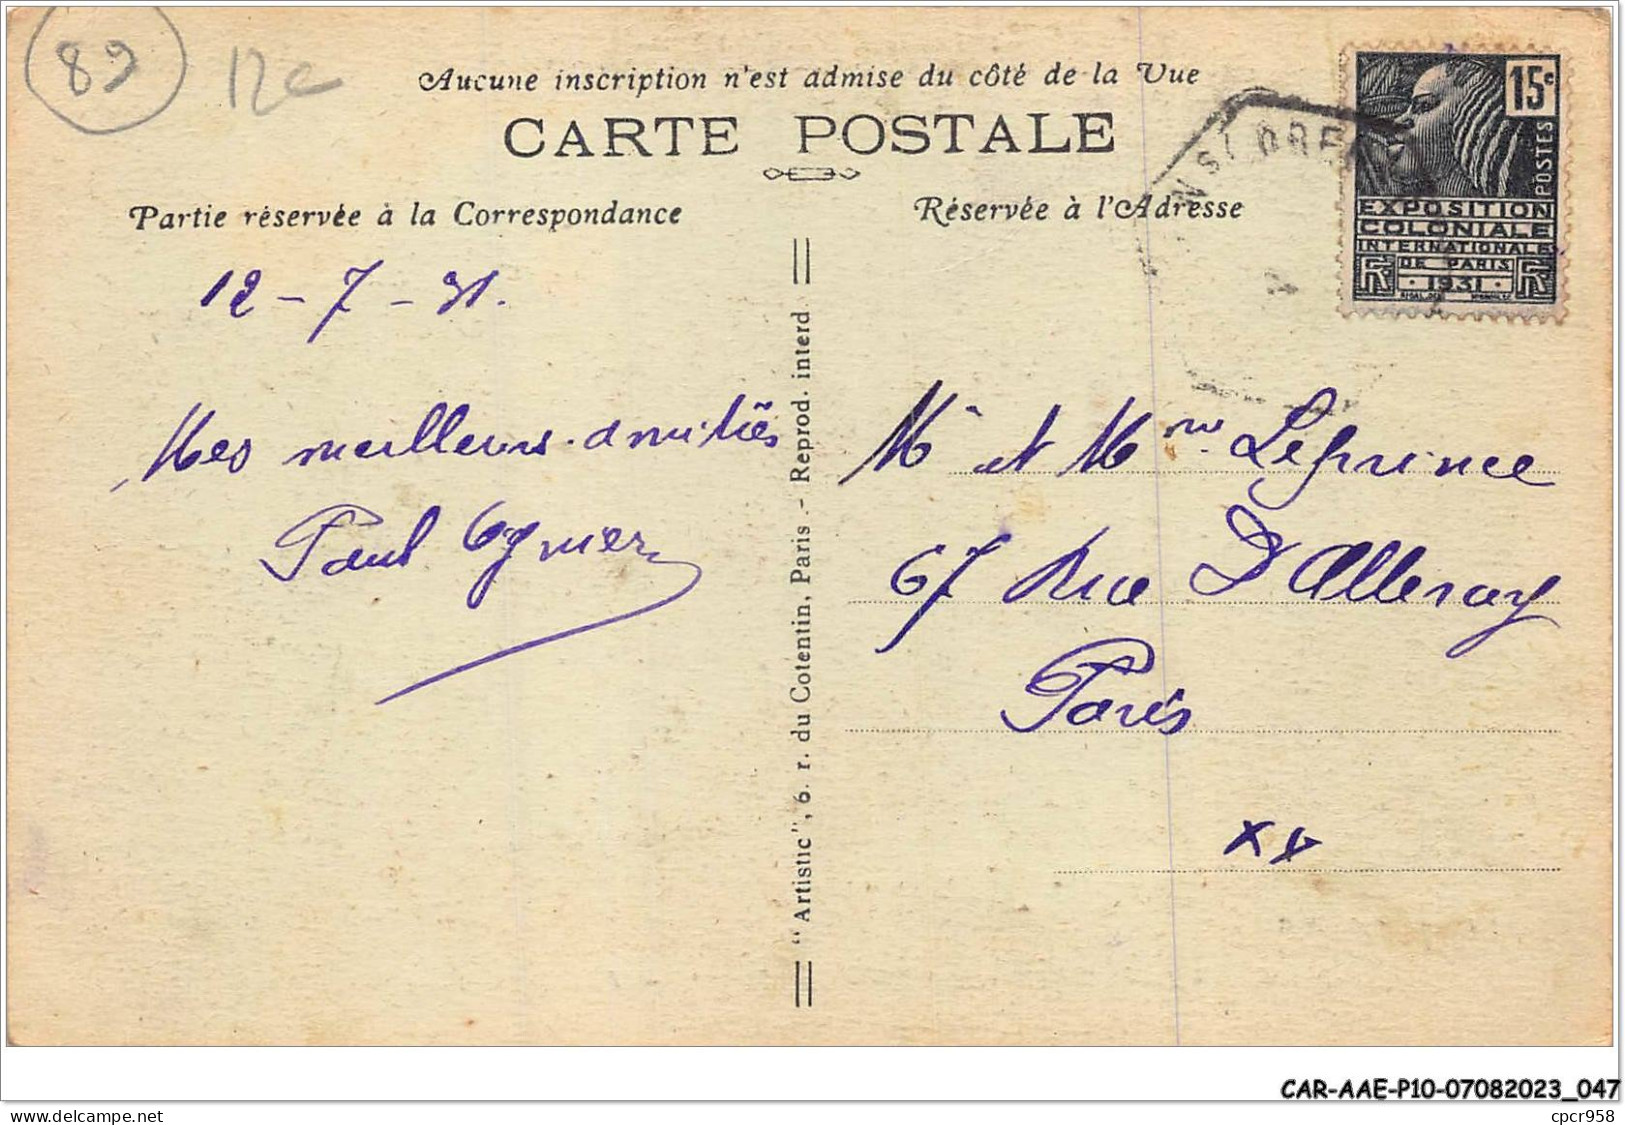 89
12€
Aucune inscription n'est admise du côté de la Vue
CARTE POSTALE
Partie réservée à la Correspondance
Réservée à l'Adresse
15c
POSTES
EXPOSITION
COLONIALE
INTERNATIONALE
DE PARIS
RF 1931 RF
12-7-31.
Mes meilleurs amitiés
Paul
Mr et Mme Leprince
67 Rue D'Alleray
Paris
"Artistic", 6. r. du Cotentin, Paris.- Reprod. interd.
CAR-AAE-P10-07082023_047
www.delcampe.net
cpcr958